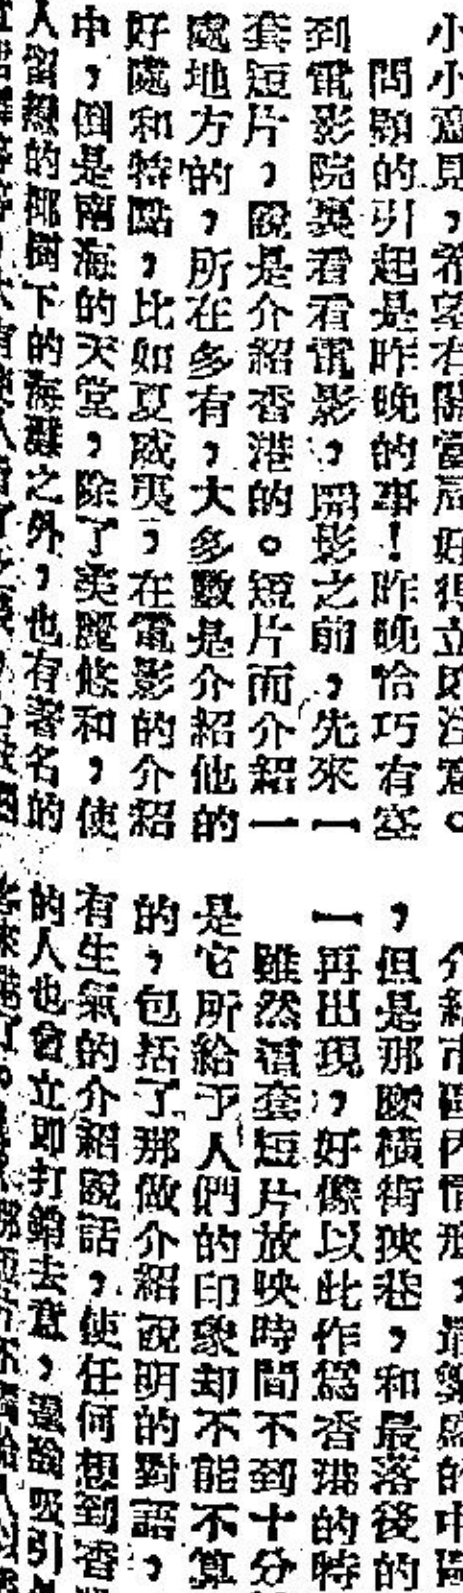 小小意見，希望有關當局好得立即注意。
問題的引起是昨晚的事！昨晚恰巧有空
到電影院裏看看電影，開影之前，先來一
套短片，說是介紹香港的。短片而介紹一
處地方的，所在多有，大多數是介紹他的
好處和特點，比如夏威夷，在電影的介紹
中，倒是南海的天堂，除了美麗悠和，使
人留戀的椰樹下的海灘之外，也有著名的
介紹市區內情形，最繁盛的中區
，但是那麼橫街狹巷，和最落後的
一再出現，好像以此作為香港的特
雖然這套短片放映時間不到十分
是它所給予人們的印象却不能不算
的，包括了那做介紹說明的對語，
有生氣的介紹說話，使任何想到香
的人也會立即打銷去意，還論吸引